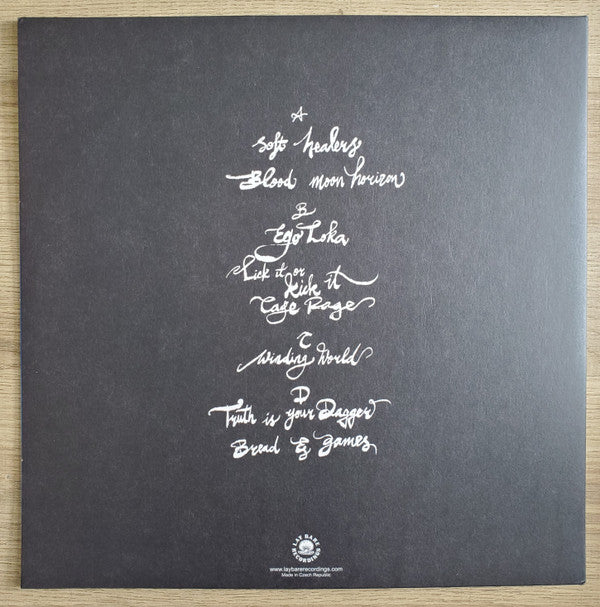 A
Soft healers
Blood moon horizon
B
Ego Loka
Lick it or
kick it
Cage Rage
C
Winding World
D
Truth is your Dagger
Bread & games
LAY BARE
RECORDINGS
www.laybarerecordings.com
Made in Czech Republic